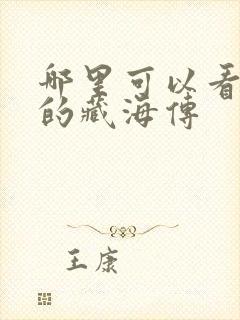 哪里可以看
的藏海传
王康